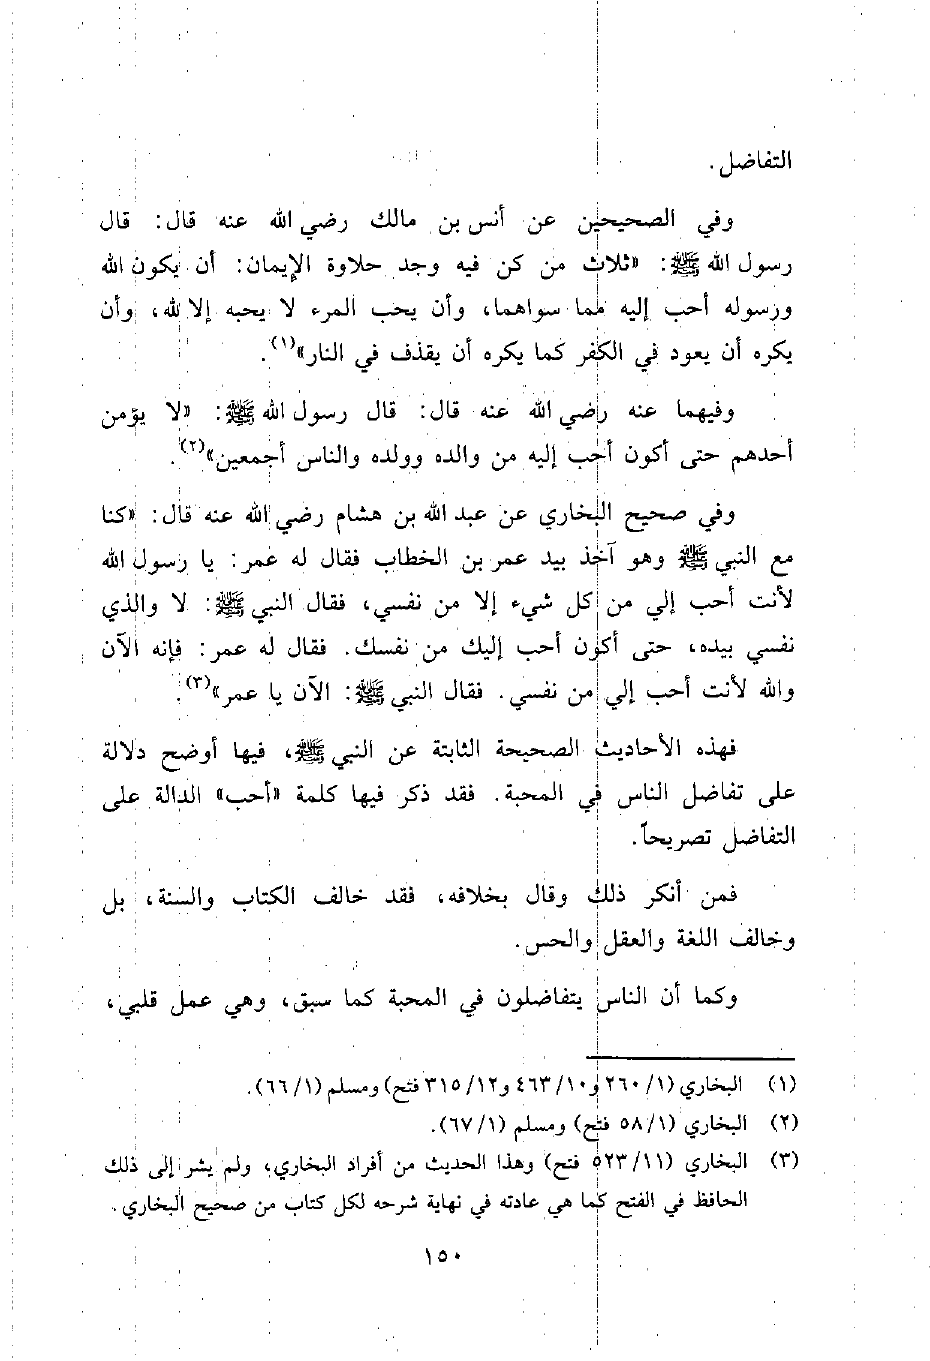 التفاضل.
وفي الصحيحين عن أنس بن مالك رضي الله عنه قال: قال
رسول الله ﷺ: «ثلاث من كن فيه وجد حلاوة الإيمان: أن يكون الله
ورسوله أحب إليه مما سواهما، وأن يحب المرء لا يحبه إلا لله، وأن
يكره أن يعود في الكفر كما يكره أن يقذف في النار»(١).
وفيهما عنه رضي الله عنه قال: قال رسول الله ﷺ: «لا يؤمن
أحدهم حتى أكون أحب إليه من والده وولده والناس أجمعين»(٢).
وفي صحيح البخاري عن عبد الله بن هشام رضي الله عنه قال: «كنا
مع النبي ﷺ وهو آخذ بيد عمر بن الخطاب فقال له عمر: يا رسول الله
لأنت أحب إلي من كل شيء إلا من نفسي، فقال النبي ﷺ: لا والذي
نفسي بيده، حتى أكون أحب إليك من نفسك. فقال له عمر: فإنه الآن
والله لأنت أحب إلي من نفسي. فقال النبي ﷺ: الآن يا عمر»(٣).
فهذه الأحاديث الصحيحة الثابتة عن النبي ﷺ، فيها أوضح دلالة
على تفاضل الناس في المحبة. فقد ذكر فيها كلمة «أحب» الدالة على
التفاضل تصريحاً.
فمن أنكر ذلك وقال بخلافه، فقد خالف الكتاب والسنة، بل
وخالف اللغة والعقل والحس.
وكما أن الناس يتفاضلون في المحبة كما سبق، وهي عمل قلبي،
(١) البخاري (١/ ٢٦٠ و١٠/ ٤٦٣ و١٢/ ٣١٥ فتح) ومسلم (١/ ٦٦).
(٢) البخاري (١/ ٥٨ فتح) ومسلم (١/ ٦٧).
(٣) البخاري (١١/ ٥٢٣ فتح) وهذا الحديث من أفراد البخاري، ولم يشر إلى ذلك
الحافظ في الفتح كما هي عادته في نهاية شرحه لكل كتاب من صحيح البخاري.
١٥٠